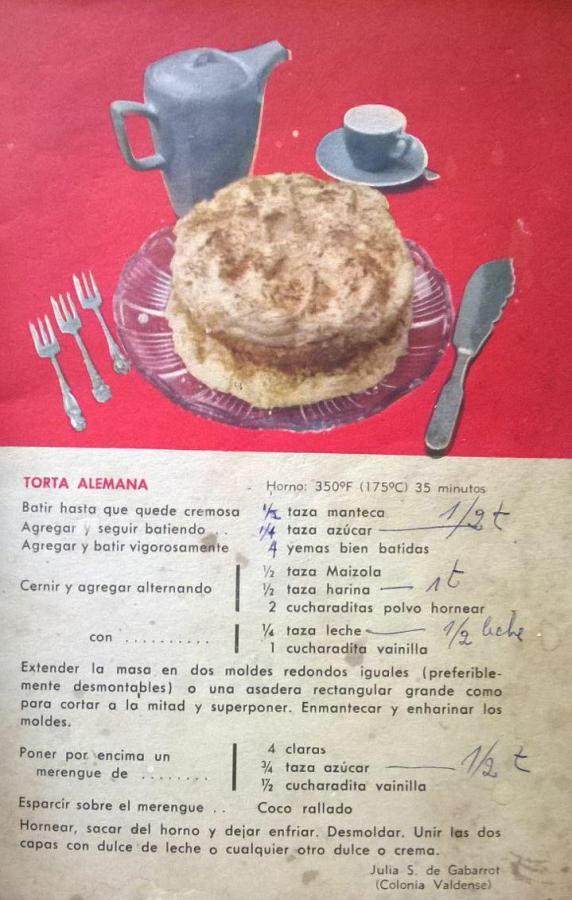 TORTA ALEMANA Horno: 350ºF (175ºC) 35 minutos
Batir hasta que quede cremosa 1/2 taza manteca
Agregar y seguir batiendo .. 1/4 taza azúcar 1/2 t
Agregar y batir vigorosamente 4 yemas bien batidas
½ taza Maizola
Cernir y agregar alternando ½ taza harina 1 t
2 cucharaditas polvo hornear
con .......... ¼ taza leche 1/2 leche
1 cucharadita vainilla
Extender la masa en dos moldes redondos iguales (preferible-
mente desmontables) o una asadera rectangular grande como
para cortar a la mitad y superponer. Enmantecar y enharinar los
moldes.
Poner por encima un 4 claras
merengue de ........ ¾ taza azúcar 1/2 t
½ cucharadita vainilla
Esparcir sobre el merengue .. Coco rallado
Hornear, sacar del horno y dejar enfriar. Desmoldar. Unir las dos
capas con dulce de leche o cualquier otro dulce o crema.
Julia S. de Gabarrot
(Colonia Valdense)